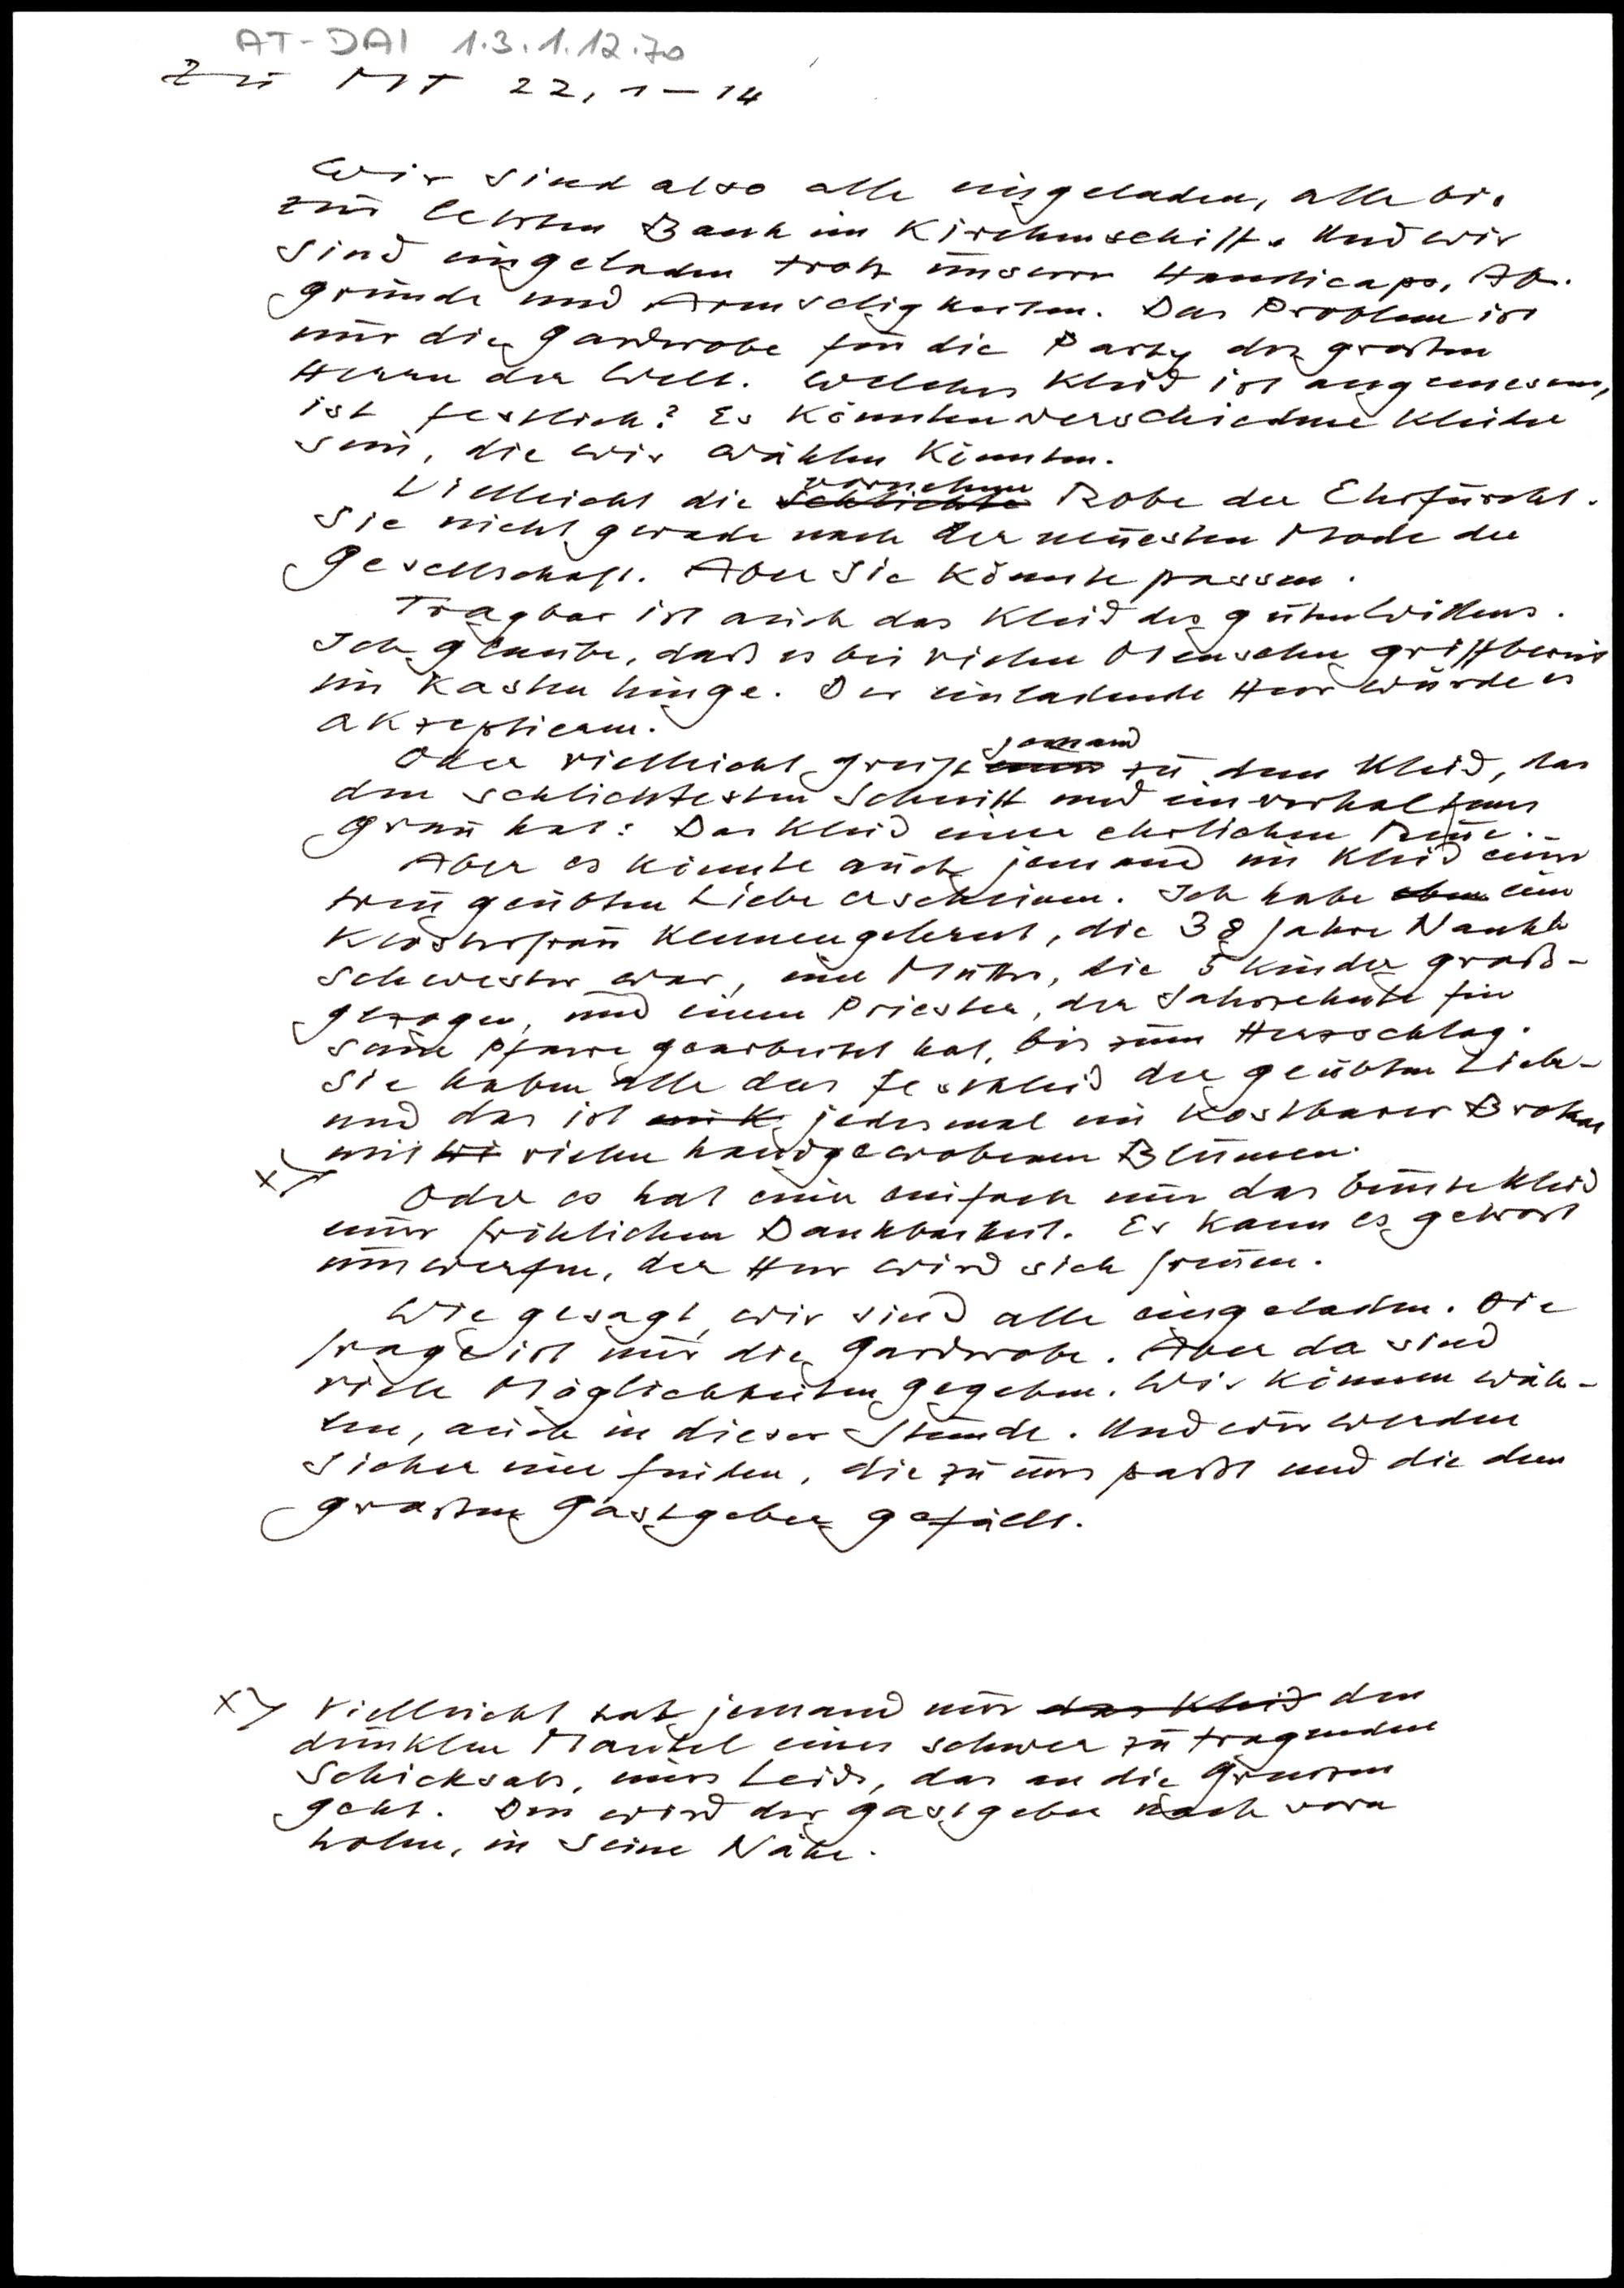 AT-DAI 1.3.1.12.70
Zu MT 22, 1-14
Wir sind also alle eingeladen, alle bis
zur letzten Bank im Kirchenschiff. Und wir
sind eingeladen trotz unserer Handicaps, Ab-
gründe und Armseligkeiten. Das Problem ist
nur die Garderobe für die Party des großen
Herrn der Welt. Welches Kleid ist angemessen,
ist festlich? Es könnten verschiedene Kleider
sein, die wir wählen könnten.
Vielleicht die schlichte vornehme Robe der Ehrfurcht.
Sie nicht gerade nach der neuesten Mode der
Gesellschaft. Aber sie könnte passen.
Tragbar ist auch das Kleid des guten Willens.
Ich glaube, daß es bei vielen Menschen griffbereit
im Kasten hinge. Der einladende Herr würde es
akzeptieren.
Oder vielleicht greift jemand zu dem Kleid, das
den schlichtesten Schnitt und ein verhaltenes
Grau hat: Das Kleid einer ehrlichen Reue.-
Aber es könnte auch jemand im Kleid einer
treu geübten Liebe erscheinen. Ich habe eben eine
Klosterfrau kennengelernt, die 38 Jahre Nacht
schwester war, eine Mutter, die 5 Kinder groß-
gezogen, und einen Priester, der Jahrzehnte für
seine Pfarre gearbeitet hat, bis zum Herzschlag.
Sie haben alle das Festkleid der geübten Liebe-
und das ist jedesmal ein kostbarer Brokat
mit vielen handgewobenen Blumen.
x) Oder es hat einer einfach nur das bunte Kleid
einer fröhlichen Dankbarkeit. Er kann es getrost
umwerfen, der Herr wird sich freuen.
Wie gesagt, wir sind alle eingeladen. Die
Frage ist nur die Garderobe. Aber da sind
viele Möglichkeiten gegeben. Wir können wäh-
len, auch in dieser Stunde. Und wir werden
sicher eine finden, die zu uns paßt und die dem
großen Gastgeber gefällt.
x) Vielleicht hat jemand nur das Kleid den
dunklen Mantel eines schwer zu tragenden
Schicksals, eines Leids, das an die Grenzen
geht. Den wird der Gastgeber nach vorn
holen, in seine Nähe.